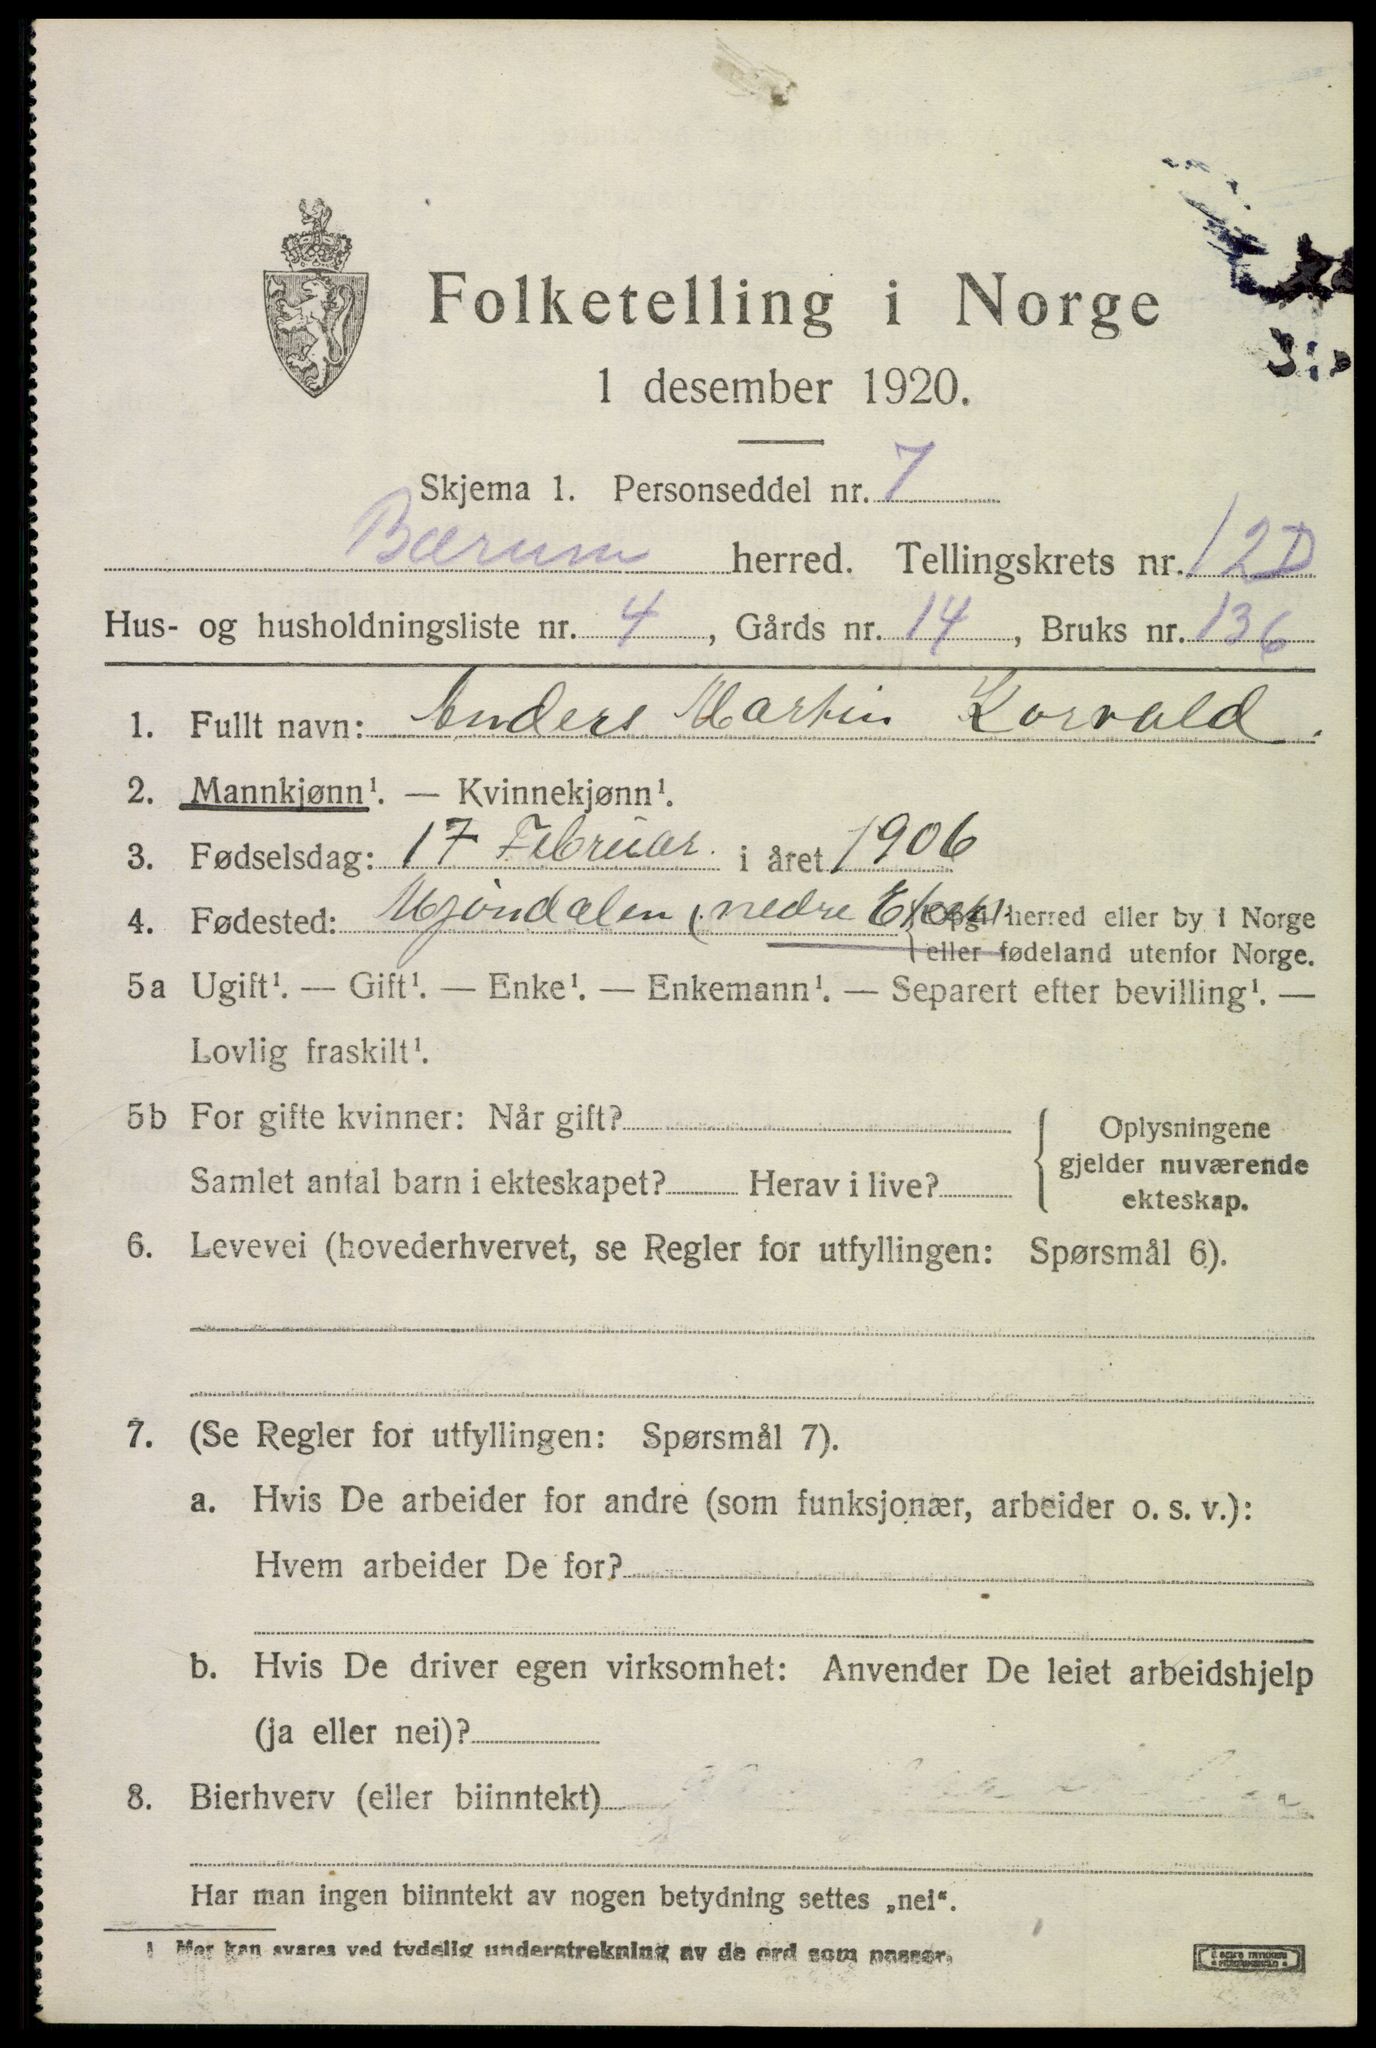 Folketelling i Norge
1 desember 1920.
Skjema 1. Personseddel nr. 7
Bærum herred. Tellingskrets nr. 12D
Hus- og husholdningsliste nr. 4, Gårds nr. 14, Bruks nr. 136
1. Fullt navn: Anders Martin Korvald.
2. Mannkjønn¹. — Kvinnekjønn¹.
3. Fødselsdag: 17 Februar. i året 1906
4. Fødested: Mjöndalen (nedre Eker). {Opgi herred eller by i Norge
eller fødeland utenfor Norge.
5a Ugift¹. — Gift¹. — Enke¹. — Enkemann¹. — Separert efter bevilling¹. —
Lovlig fraskilt¹.
5b For gifte kvinner: Når gift?
Samlet antal barn i ekteskapet? Herav i live?
{ Oplysningene
gjelder nuværende
ekteskap.
6. Levevei (hovederhvervet, se Regler for utfyllingen: Spørsmål 6).
7. (Se Regler for utfyllingen: Spørsmål 7).
a. Hvis De arbeider for andre (som funksjonær, arbeider o. s. v.):
Hvem arbeider De for?
b. Hvis De driver egen virksomhet: Anvender De leiet arbeidshjelp
(ja eller nei)?
8. Bierhverv (eller biinntekt)
Har man ingen biinntekt av nogen betydning settes „nei“.
1 Mer kan svares ved tydelig understrekning av de ord som passer.